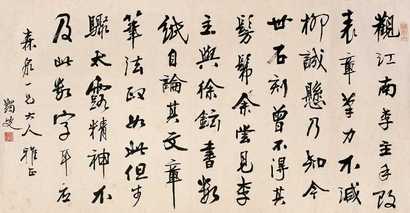 觀江南李主手改
表章筆力不減
柳誠懸乃知今
世石刻曾不得其
髣髴余嘗見李
主與徐鉉書數
紙自論其文章
筆法政如此但步
驟太露精神不
及此數字
一兄大人雅正